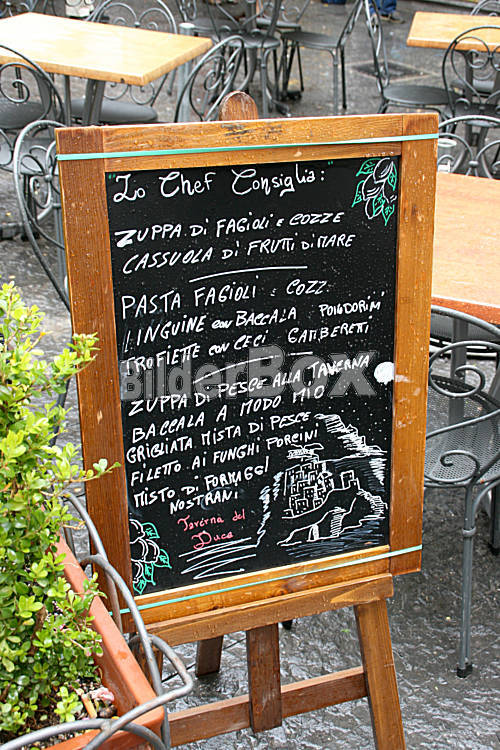 "Lo Chef Consiglia:"
ZUPPA Di FAGIOLI E COZZE
CASSUOLA Di FRUTTI Di MARE
PASTA FAGIOLI E COZZ
LINGUINE con BACCALA POMODORINI
TROFIETTE con CECI GAMBERETTI
ZUPPA Di PESCE ALLA TAVERNA
BACCALA A MODO MIO
GRIGLIATA MISTA Di PESCE
FILETTO AI FUNGHI PORCINI
MISTO Di FORMAGGI
NOSTRANI
Taverna del
Duca
BilderBox